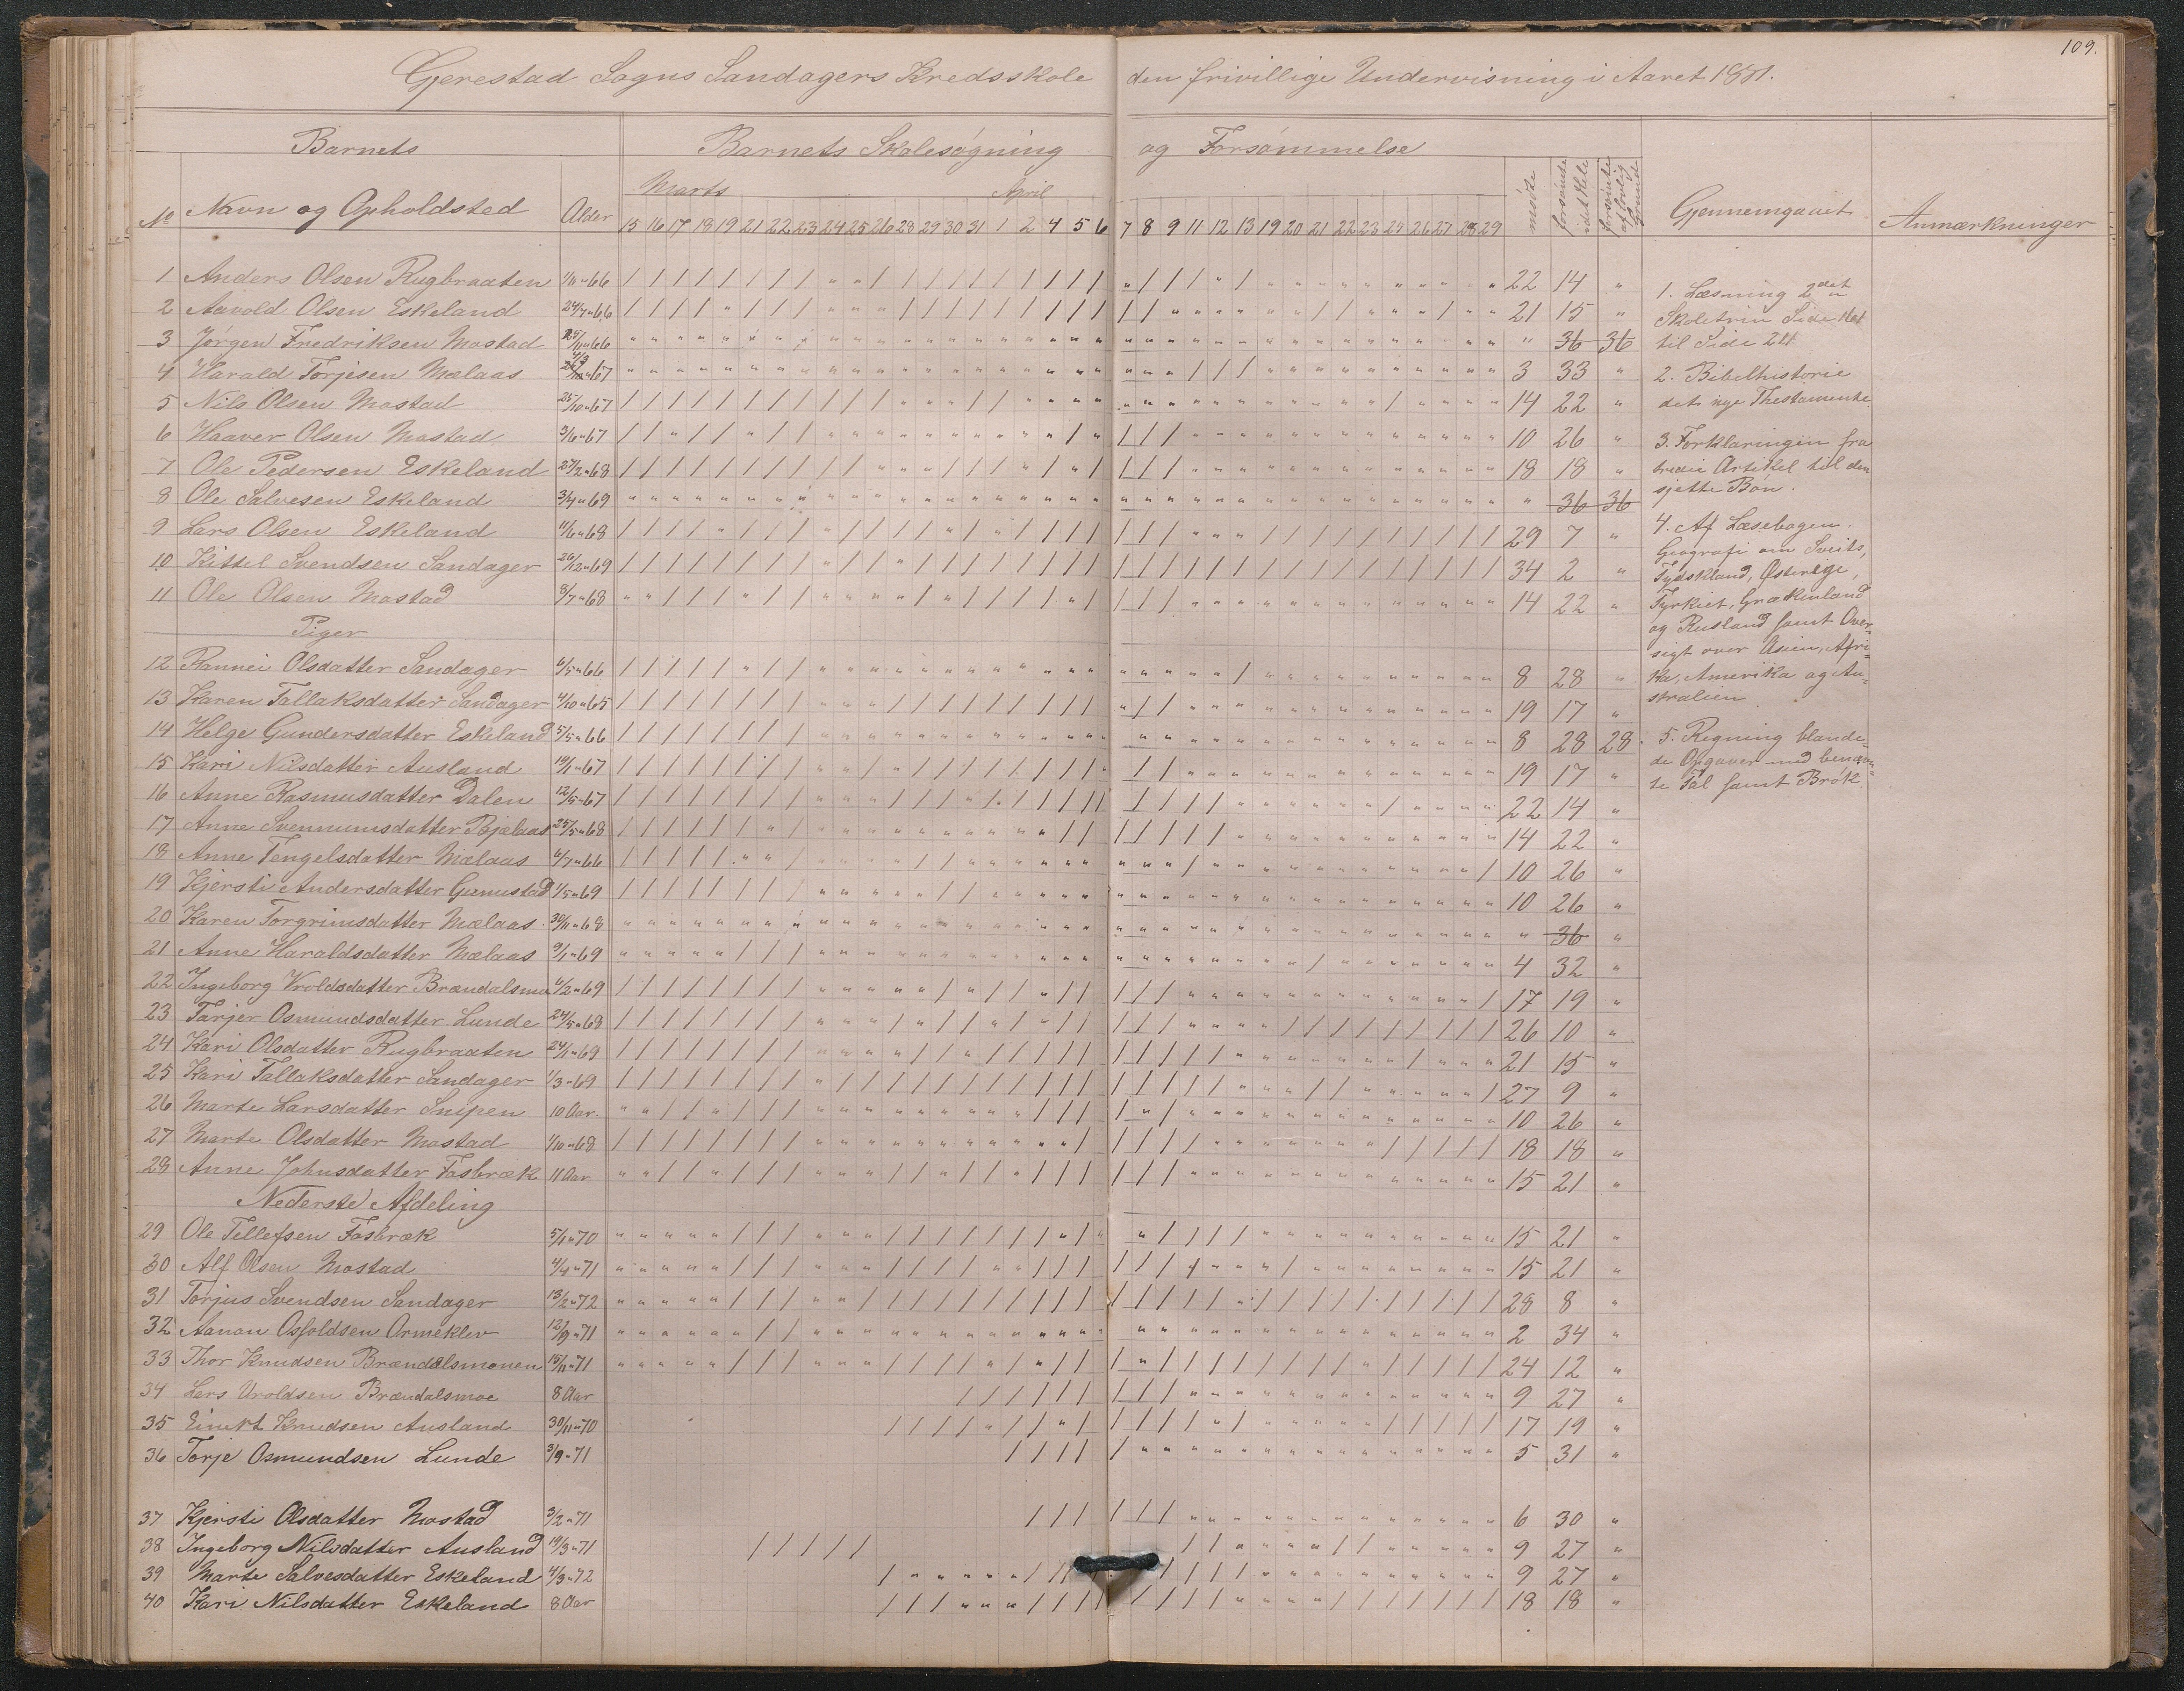 109.
Gjerestad Sogns Sandagers Kredsskole den frivillige Undervisning i Aaret 1881.
Barnets Barnets Skolesøgning og Forsømmelse
Marts April
No Navn og Opholdsted Alder 15 16 17 18 19 21 22 23 24 25 26 28 29 30 31 1 2 4 5 6 7 8 9 11 12 13 19 20 21 22 23 25 26 27 28 29 mødte forsømte idethele forsømte af lovlig Grunde Gjennemgaaet Anmærkninger
1 Anders Olsen Rugbraaten 66 22 14 "
2 Aavold Olsen Eskeland 24/7 " 66 21 15 "
3 Jørgen Fredriksen Mostad 25/11 " 66 " 36 36
4 Harald Torjesen Mælaas 67 3 33 "
5 Nils Olsen Mostad 25/10 " 67 14 22 "
6 Haaver Olsen Mostad 3/6 " 67 10 26 "
7 Ole Pedersen Eskeland 27/2 " 68 18 18 "
8 Ole Salvesen Eskeland 3/4 " 69 " 36 36
9 Lars Olsen Eskeland 11/6 " 68 29 7 "
10 Kittel Svendsen Sandager 26/12 " 69 34 2 "
11 Ole Olsen Mostad 8/7 " 68 14 22 "
Piger
12 Rannei Olsdatter Sandager 6/5 " 66 8 28 "
13 Karen Tallaksdatter Sandager 4/10 " 65 19 17 "
14 Helge Gundersdatter Eskeland 5/5 " 66 8 28 28
15 Kari Nilsdatter Ausland 19/11 " 67 19 17 "
16 Anne Rasmusdatter Dalen 12/5 " 67 22 14 "
17 Anne Svennumsdatter 25/5 " 68 14 22 "
18 Anne Tengelsdatter Mælaas 6/7 " 66 10 26 "
19 Kjersti Andersdatter 1/5 " 69 10 26 "
20 Karen Torgrimsdatter Mælaas 30/11 " 68 " 36 "
21 Anne Haraldsdatter Mælaas 9/1 " 69 4 32 "
22 Ingeborg Vroldsdatter Brændalsmo 4/2 " 69 17 19 "
23 Tarjer Osmundsdatter Lunde 24/5 " 68 26 10 "
24 Kari Olsdatter Rugbraaten 24/1 " 69 21 15 "
25 Kari Tallaksdatter Sandager 1/3 " 69 27 9 "
26 Marte Larsdatter Snipen 10 Aar 10 26 "
27 Marte Olsdatter Mostad 1/10 " 68 18 18 "
28 Anne Johnsdatter Fosbræk 11 Aar 15 21 "
Nederste Afdeling
29 Ole Tellefsen Fosbræk 5/1 " 70 15 21 "
30 Alf Olsen Mostad 4/4 " 71 15 21 "
31 Torjus Svendsen Sandager 13/2 " 72 28 8 "
32 Aanon Osfoldsen Ormeklev 12/9 " 71 2 34 "
33 Thor Knudsen Brændalsmonen 15/11 " 71 24 12 "
34 Lars Uroldsen Brændalsmoe 8 Aar 9 27 "
35 Knudsen Ausland 30/11 " 70 17 19 "
36 Torje Osmundsen Lunde 3/9 " 71 5 31 "
37 Kjersti Olsdatter Mostad 3/2 " 71 6 30 "
38 Ingeborg Nilsdatter Ausland 19/3 " 71 9 27 "
39 Marte Salvesdatter Eskeland 4/3 " 72 9 27 "
40 Kari Nilsdatter Eskeland 8 Aar 18 18 "
1. Læsning 2det
Skoletrin Side
til Side
2. Bibelhistorie
det nye Thestamente.
3. Forklaringen fra
tredie Artikel til den
sjette Bøn.
4. Af Læsebogen.
Geografi om Sveits,
Tydskland, Østerige,
Tyrkiet, Grækenland
og Rusland samt Over-
sigt over Asien, Afri-
ka, Amerika og Au-
stralien
5. Regning blande-
de Opgaver med benævn-
te Tal samt Brøk.